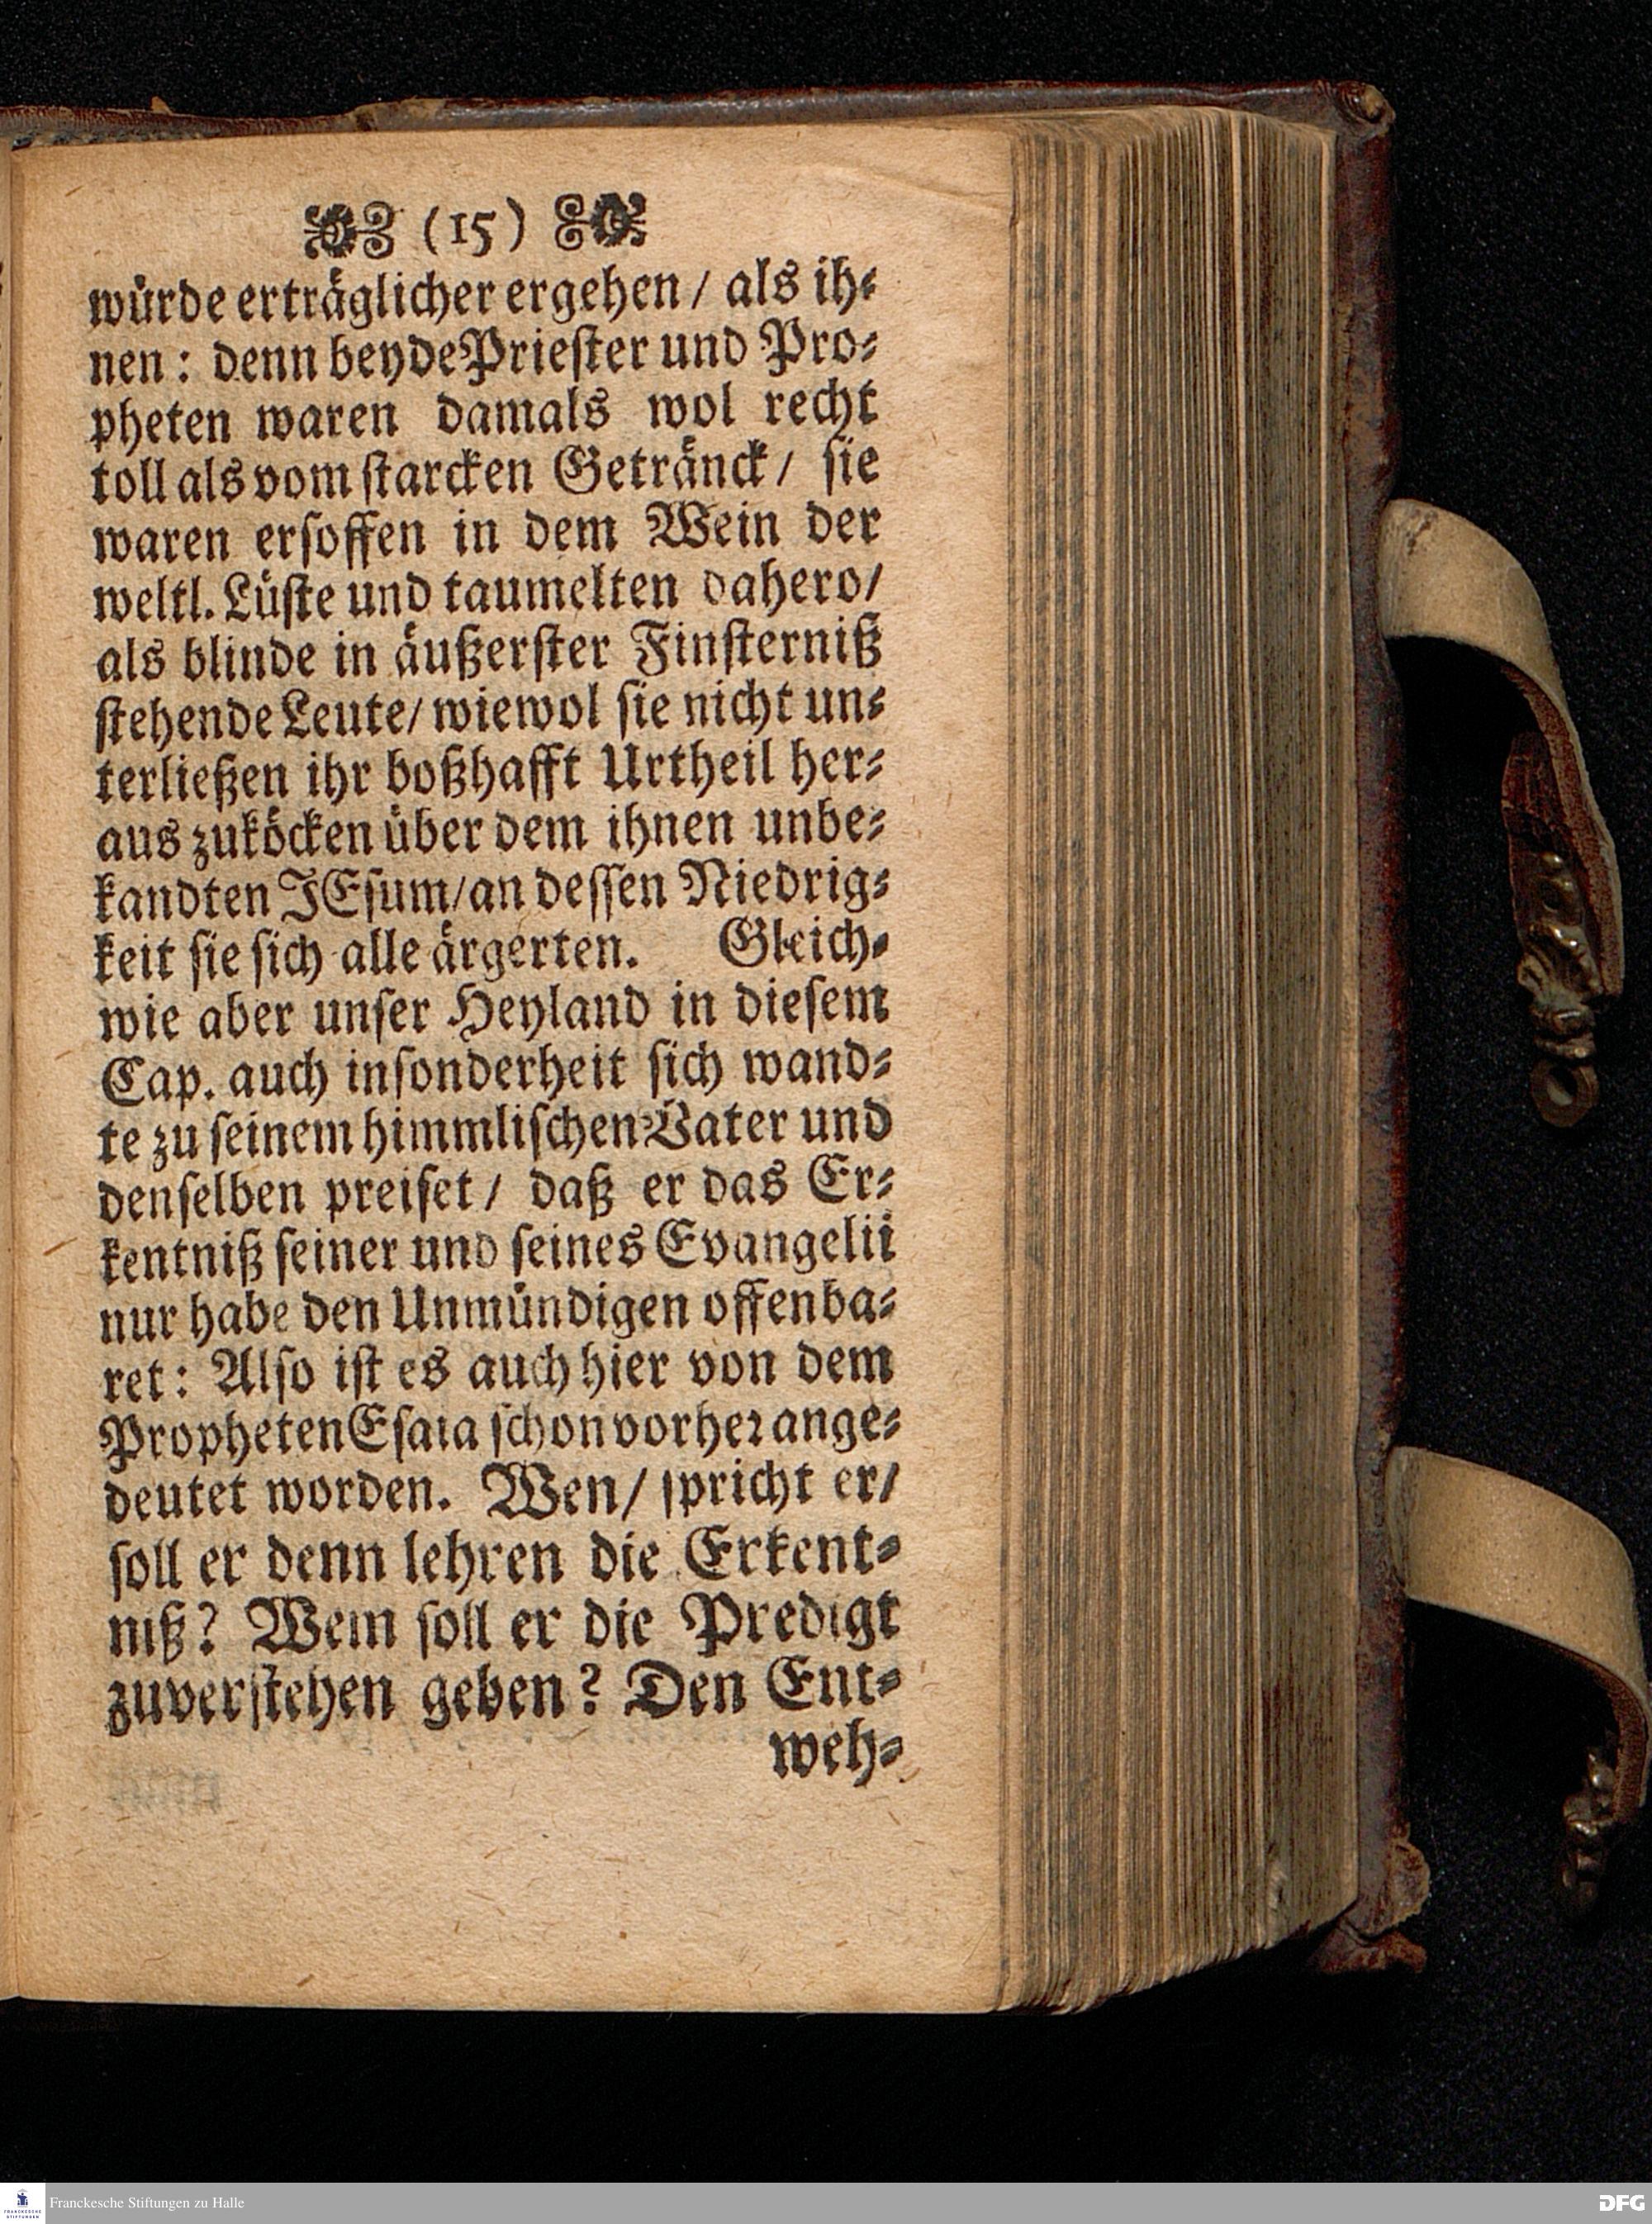 (15)
würde erträglicher ergehen / als ih⸗
nen : denn beyde Priester und Pro⸗
pheten waren damals wol recht
toll als vom starcken Getränck / sie
waren ersoffen in dem Wein der
weltl. Lüste und taumelten dahero /
als blinde in äußerster Finsterniß
stehende Leute / wiewol sie nicht un⸗
terließen ihr boßhafft Urtheil her⸗
aus zuköcken über dem ihnen unbe⸗
kandten JEsum / an dessen Niedrig⸗
keit sie sich alle ärgerten. Gleich⸗
wie aber unser Heyland in diesem
Cap. auch insonderheit sich wand⸗
te zu seinem himmlischen Vater und
denselben preiset / daß er das Er⸗
kentniß seiner und seines Evangelii
nur habe den Unmündigen offenba⸗
ret : Also ist es auch hier von dem
Propheten Esaia schon vorher ange⸗
deutet worden. Wen / spricht er /
soll er denn lehren die Erkent⸗
niß? Wem soll er die Predigt
zuverstehen geben? Den Ent⸗
weh⸗
Franckesche Stiftungen zu Halle
DFG